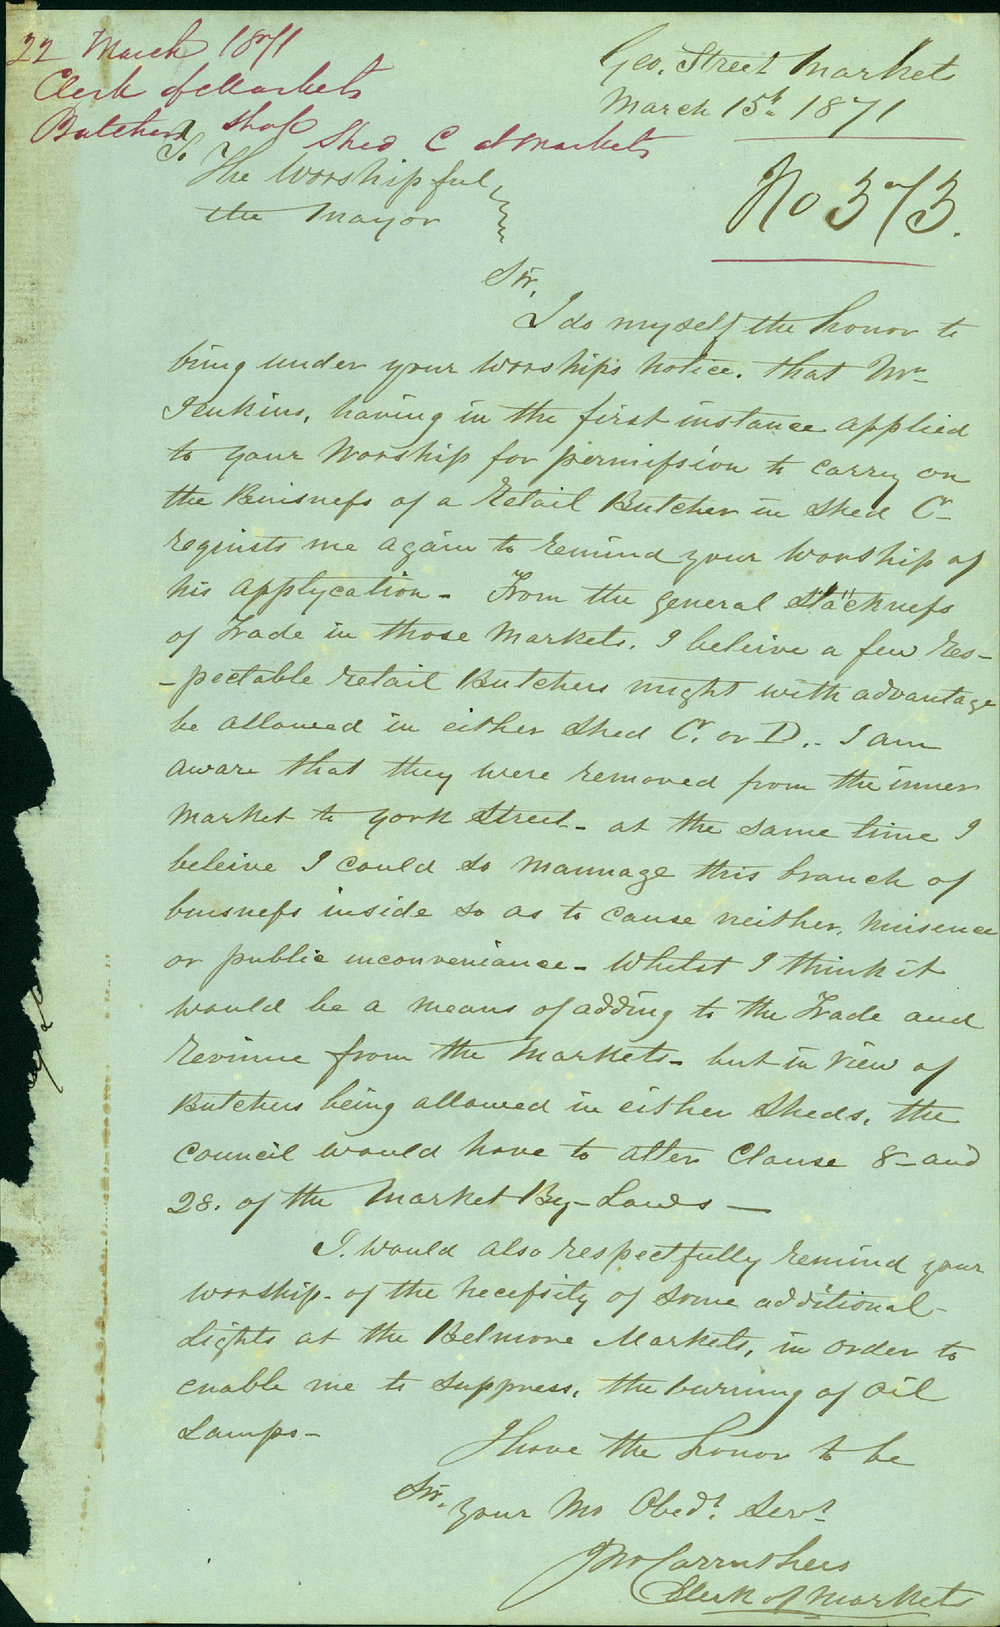 22 March 1871
Clerk of Markets
Butchers Shop Shed C at Markets
Geo. Street Market
March 15th 1871
No 373.
To
The Worshipful
the Mayor
Sir,
I do myself the honor to
bring under your Worships notice. that Mr
Jenkins, having in the first instance applied
to your Worship for permission to carry on
the Buisness of a Retail Butcher in Shed C.
requists me again to remind your Worship of
his applycation - From the general Slackness
of Trade in those Markets. I beleive a few Res-
-pectable retail Butchers might with advantage
be allowed in either Shed C. or D.. I am
aware that they were removed from the inner
Market to York Street - at the same time I
beleive I could so mannage this branch of
buisness inside so as to cause neither, nuisence
or public inconveniance - Whilst I think it
would be a means of adding to the Trade and
revinue from the Markets - but in view of
Butchers being allowed in either Sheds, the
Council would have to alter Clause 8 - and
28. of the Market By-Laws —
I. would also respectfully remind your
Worship - of the necessity of some additional -
Lights at the Belmore Markets, in order to
enable me to suppress, the burning of Oil
Lamps -
I have the honor to be
Sir,
your Mo Obedt. Servt.
Jno Carruthers
Clerk of Markets